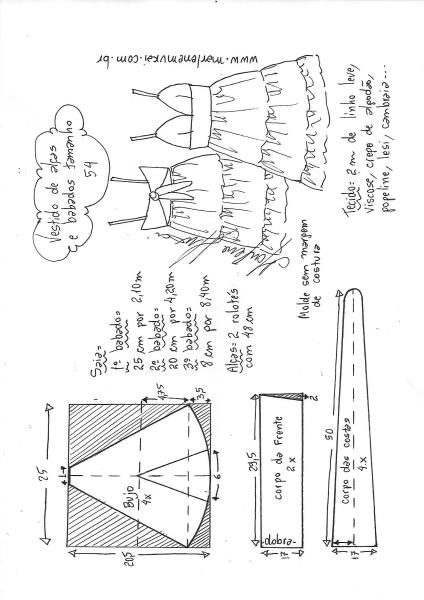 Vestido de alças
e babados tamanho
54
www.marlenemukai.com.br
Tecido: 2 m de linho leve,
viscose, crepe de algodão,
popeline, lesi, cambraia...
Saia=
1º babado=
25 cm por 2,10m
2º babado=
20 cm por 4,20m
3º babado=
8 cm por 8,40m
Alças= 2 rolotês
com 48 cm
Molde sem margem
de costura
25
1
4,75
3,5
Bujo
4x
6
20,5
29,5
2
corpo da Frente
2x
dobra
17
50
corpo das costas
4x
17